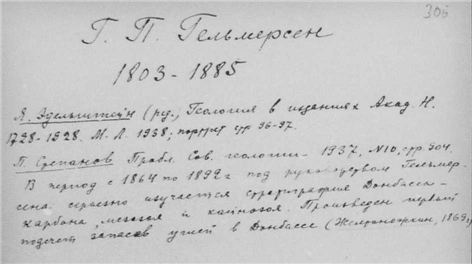 306
Г. П. Гельмерсен
1803-1885
Я. Эдельштейн (ред., Геология в изданиях Акад. Н.
1728-1928. М. Л. 1938; портрет стр 96-97.
П. Степанов Пробл. Сов. геологии - 1937, N10, стр. 904.
В период с 1864 по 1892 г под руководством Гельмер-
сена серьезно изучается стратиграфия Донбасса -
карбона, мезозоя и кайнозоя. Произведен первый
подсчет запасов углей в Донбассе (Желтоножкин, 1869,